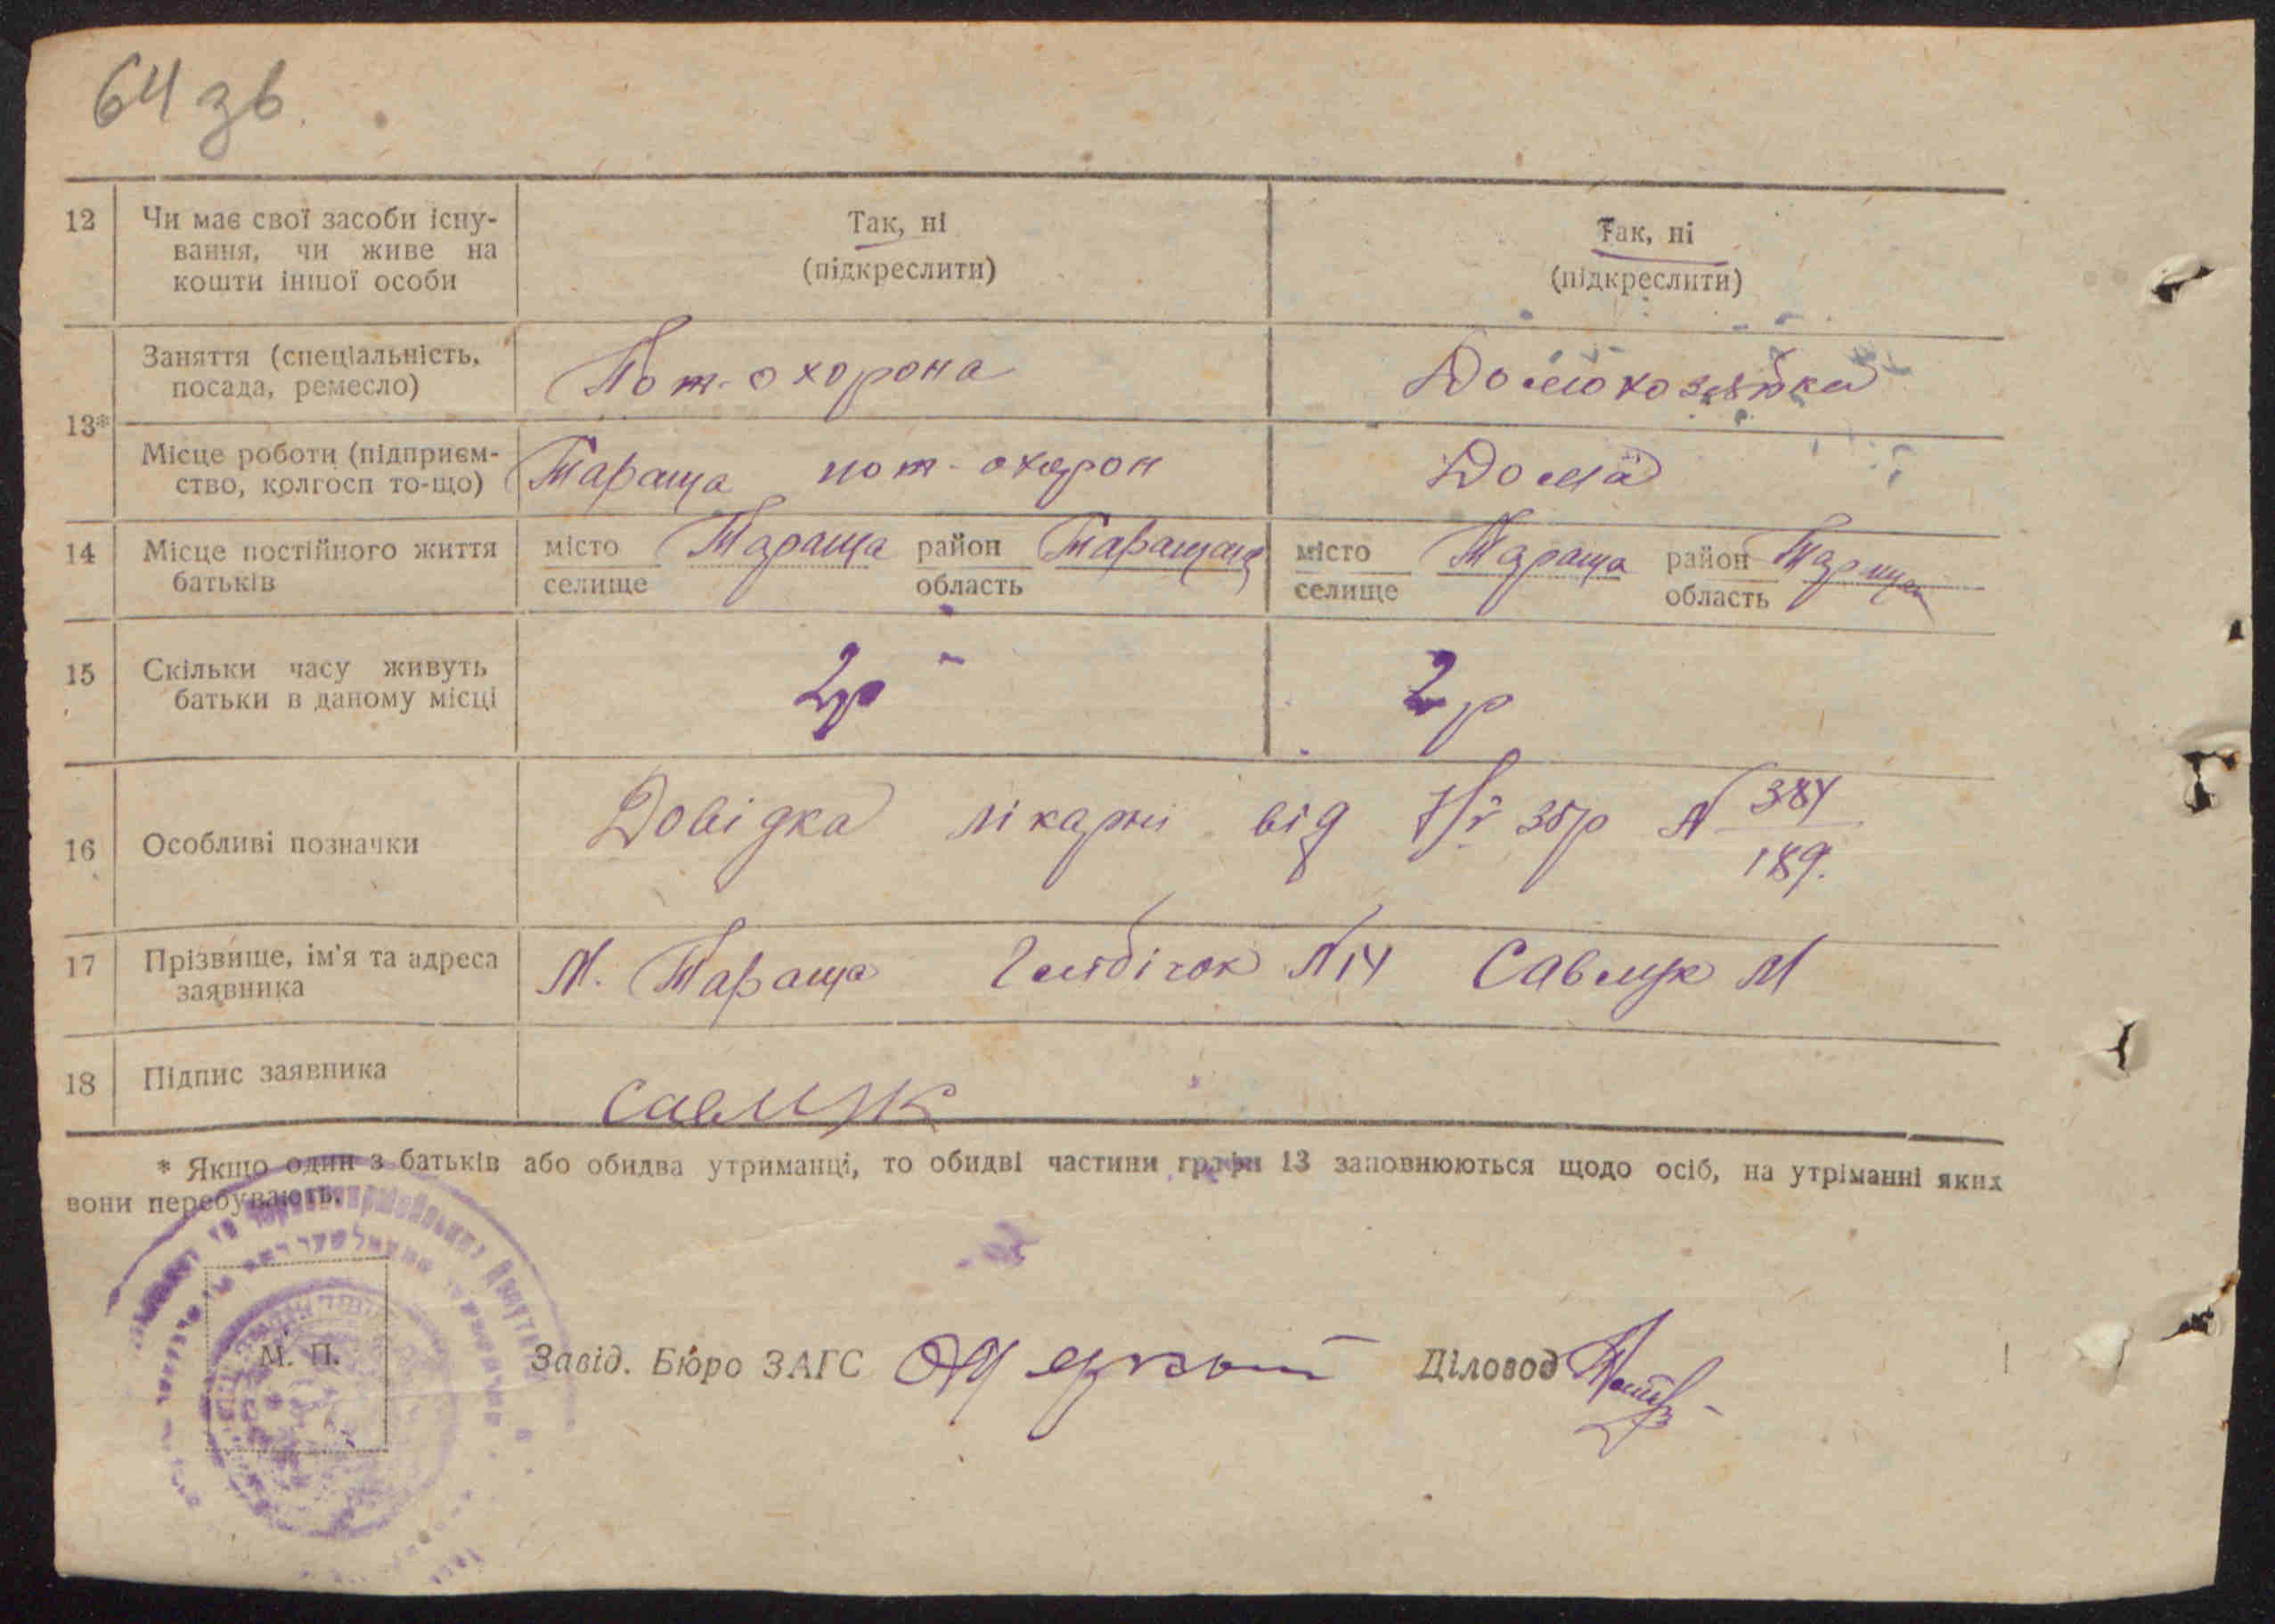 64 зв.
12 Чи має свої засоби існу- Так, ні Так, ні
вання, чи живе на (підкреслити) (підкреслити)
кошти іншої особи
13* Заняття (спеціальність, Пот-охорона Домохозяйка
посада, ремесло)
Місце роботи (підприєм- Тараща пот-охорон Дома
ство, колгосп то-що)
14 Місце постійного життя місто Тараща район місто Тараща район
батьків селище область селище область
15 Скільки часу живуть 2р 2р
батьки в даному місці
16 Особливі позначки Довідка лікарні від 38р N 384
189.
17 Прізвище, ім'я та адреса М. Тараща N 14 Савлук М
заявника
18 Підпис заявника Савлук
* Якщо один з батьків або обидва утриманці, то обидві частини графи 13 заповнюються щодо осіб, на утріманні яких
вони перебувають.
М. П.
Завід. Бюро ЗАГС Діловод